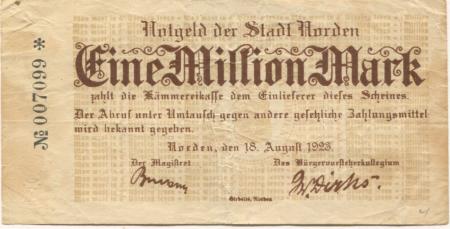 Notgeld der Stadt Norden
Eine Million Mark
zahlt die Kämmereikasse dem Einlieferer dieses Scheines.
Der Abruf unter Umtausch gegen andere gesetzliche Zahlungsmittel
wird bekannt gegeben.
Norden, den 18. August 1923.
Der Magistrat Das Bürgervorsteherkollegium
№ 007099 *